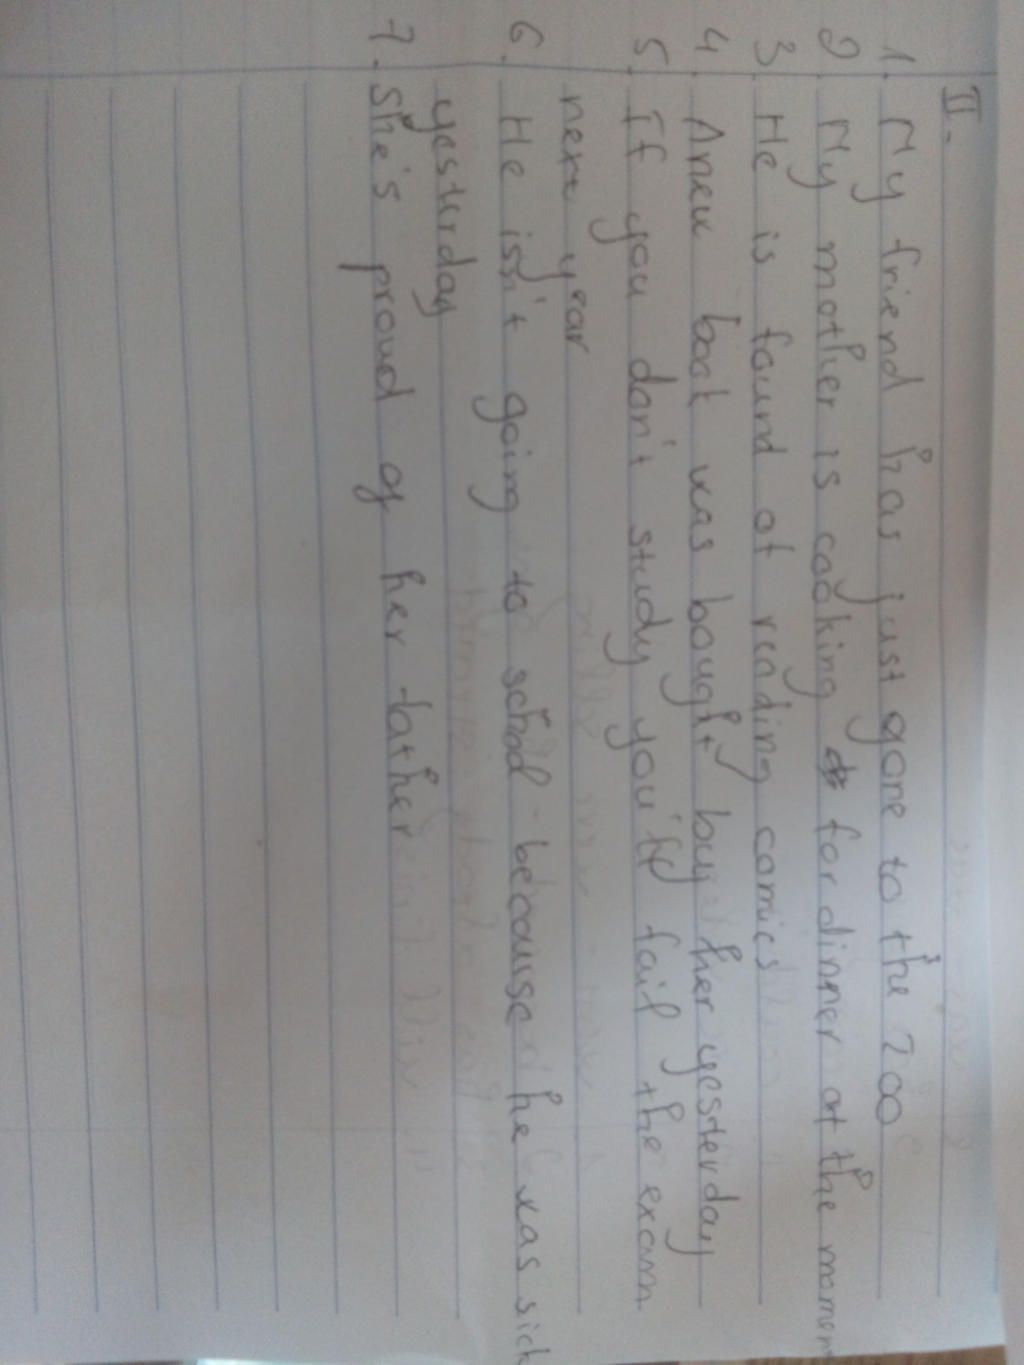 II.
1. My friend has just gone to the zoo
2. My mother is cooking for dinner at the moment
3. He is found of reading comics
4. A new book was bought buy her yesterday
5. If you don't study you'll fail the exam
next year
6. He isn't going to school because he was sick
yesterday
7. She's proud of her father